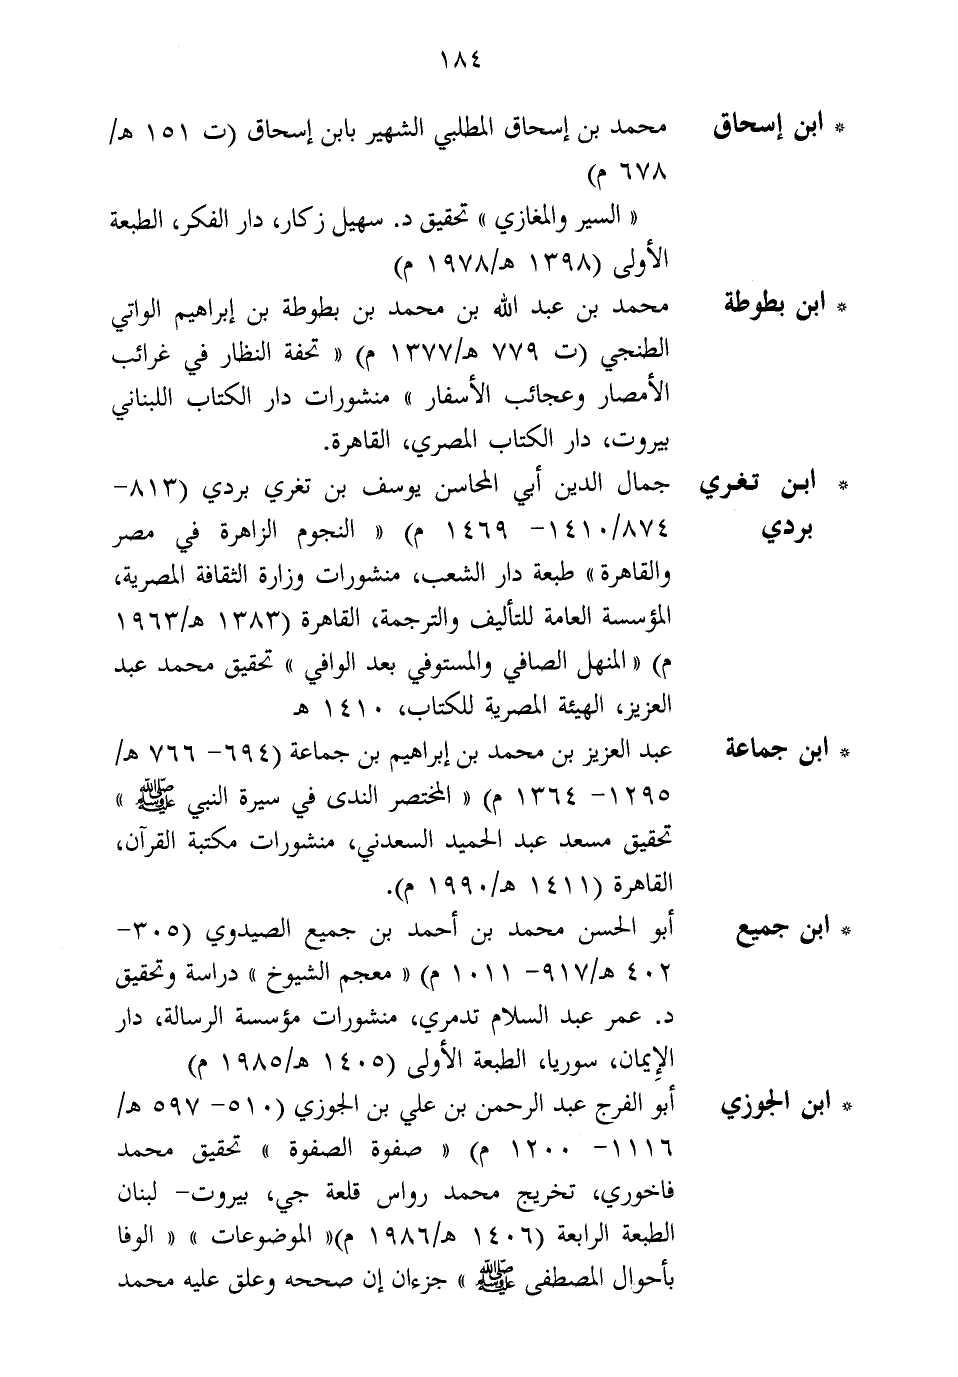 ١٨٤
* ابن إسحاق محمد بن إسحاق المطلبي الشهير بابن إسحاق (ت ١٥١ هـ/
٦٧٨ م)
« السير والمغازي » تحقيق د. سهيل زكار، دار الفكر، الطبعة
الأولى (١٣٩٨ هـ/١٩٧٨ م)
* ابن بطوطة محمد بن عبد الله بن محمد بن بطوطة بن إبراهيم الواتي
الطنجي (ت ٧٧٩ هـ/١٣٧٧ م) « تحفة النظار في غرائب
الأمصار وعجائب الأسفار » منشورات دار الكتاب اللبناني
بيروت، دار الكتاب المصري، القاهرة.
* ابن تغري جمال الدين أبي المحاسن يوسف بن تغري بردي (٨١٣-
بردي ٨٧٤/١٤١٠- ١٤٦٩ م) « النجوم الزاهرة في مصر
والقاهرة » طبعة دار الشعب، منشورات وزارة الثقافة المصرية،
المؤسسة العامة للتأليف والترجمة، القاهرة (١٣٨٣ هـ/١٩٦٣
م) « المنهل الصافي والمستوفي بعد الوافي » تحقيق محمد عبد
العزيز، الهيئة المصرية للكتاب، ١٤١٠ هـ
* ابن جماعة عبد العزيز بن محمد بن إبراهيم بن جماعة (٦٩٤- ٧٦٦ هـ/
١٢٩٥- ١٣٦٤ م) « المختصر الندى في سيرة النبي ﷺ »
تحقيق مسعد عبد الحميد السعدني، منشورات مكتبة القرآن،
القاهرة (١٤١١ هـ/١٩٩٠ م).
* ابن جميع أبو الحسن محمد بن أحمد بن جميع الصيدوي (٣٠٥-
٤٠٢ هـ/٩١٧- ١٠١١ م) « معجم الشيوخ » دراسة وتحقيق
د. عمر عبد السلام تدمري، منشورات مؤسسة الرسالة، دار
الإيمان، سوريا، الطبعة الأولى (١٤٠٥ هـ/١٩٨٥ م)
* ابن الجوزي أبو الفرج عبد الرحمن بن علي بن الجوزي (٥١٠- ٥٩٧ هـ/
١١١٦- ١٢٠٠ م) « صفوة الصفوة » تحقيق محمد
فاخوري، تخريج محمد رواس قلعة جي، بيروت- لبنان
الطبعة الرابعة (١٤٠٦ هـ/١٩٨٦ م)« الموضوعات » « الوفا
بأحوال المصطفى ﷺ » جزءان إن صححه وعلق عليه محمد